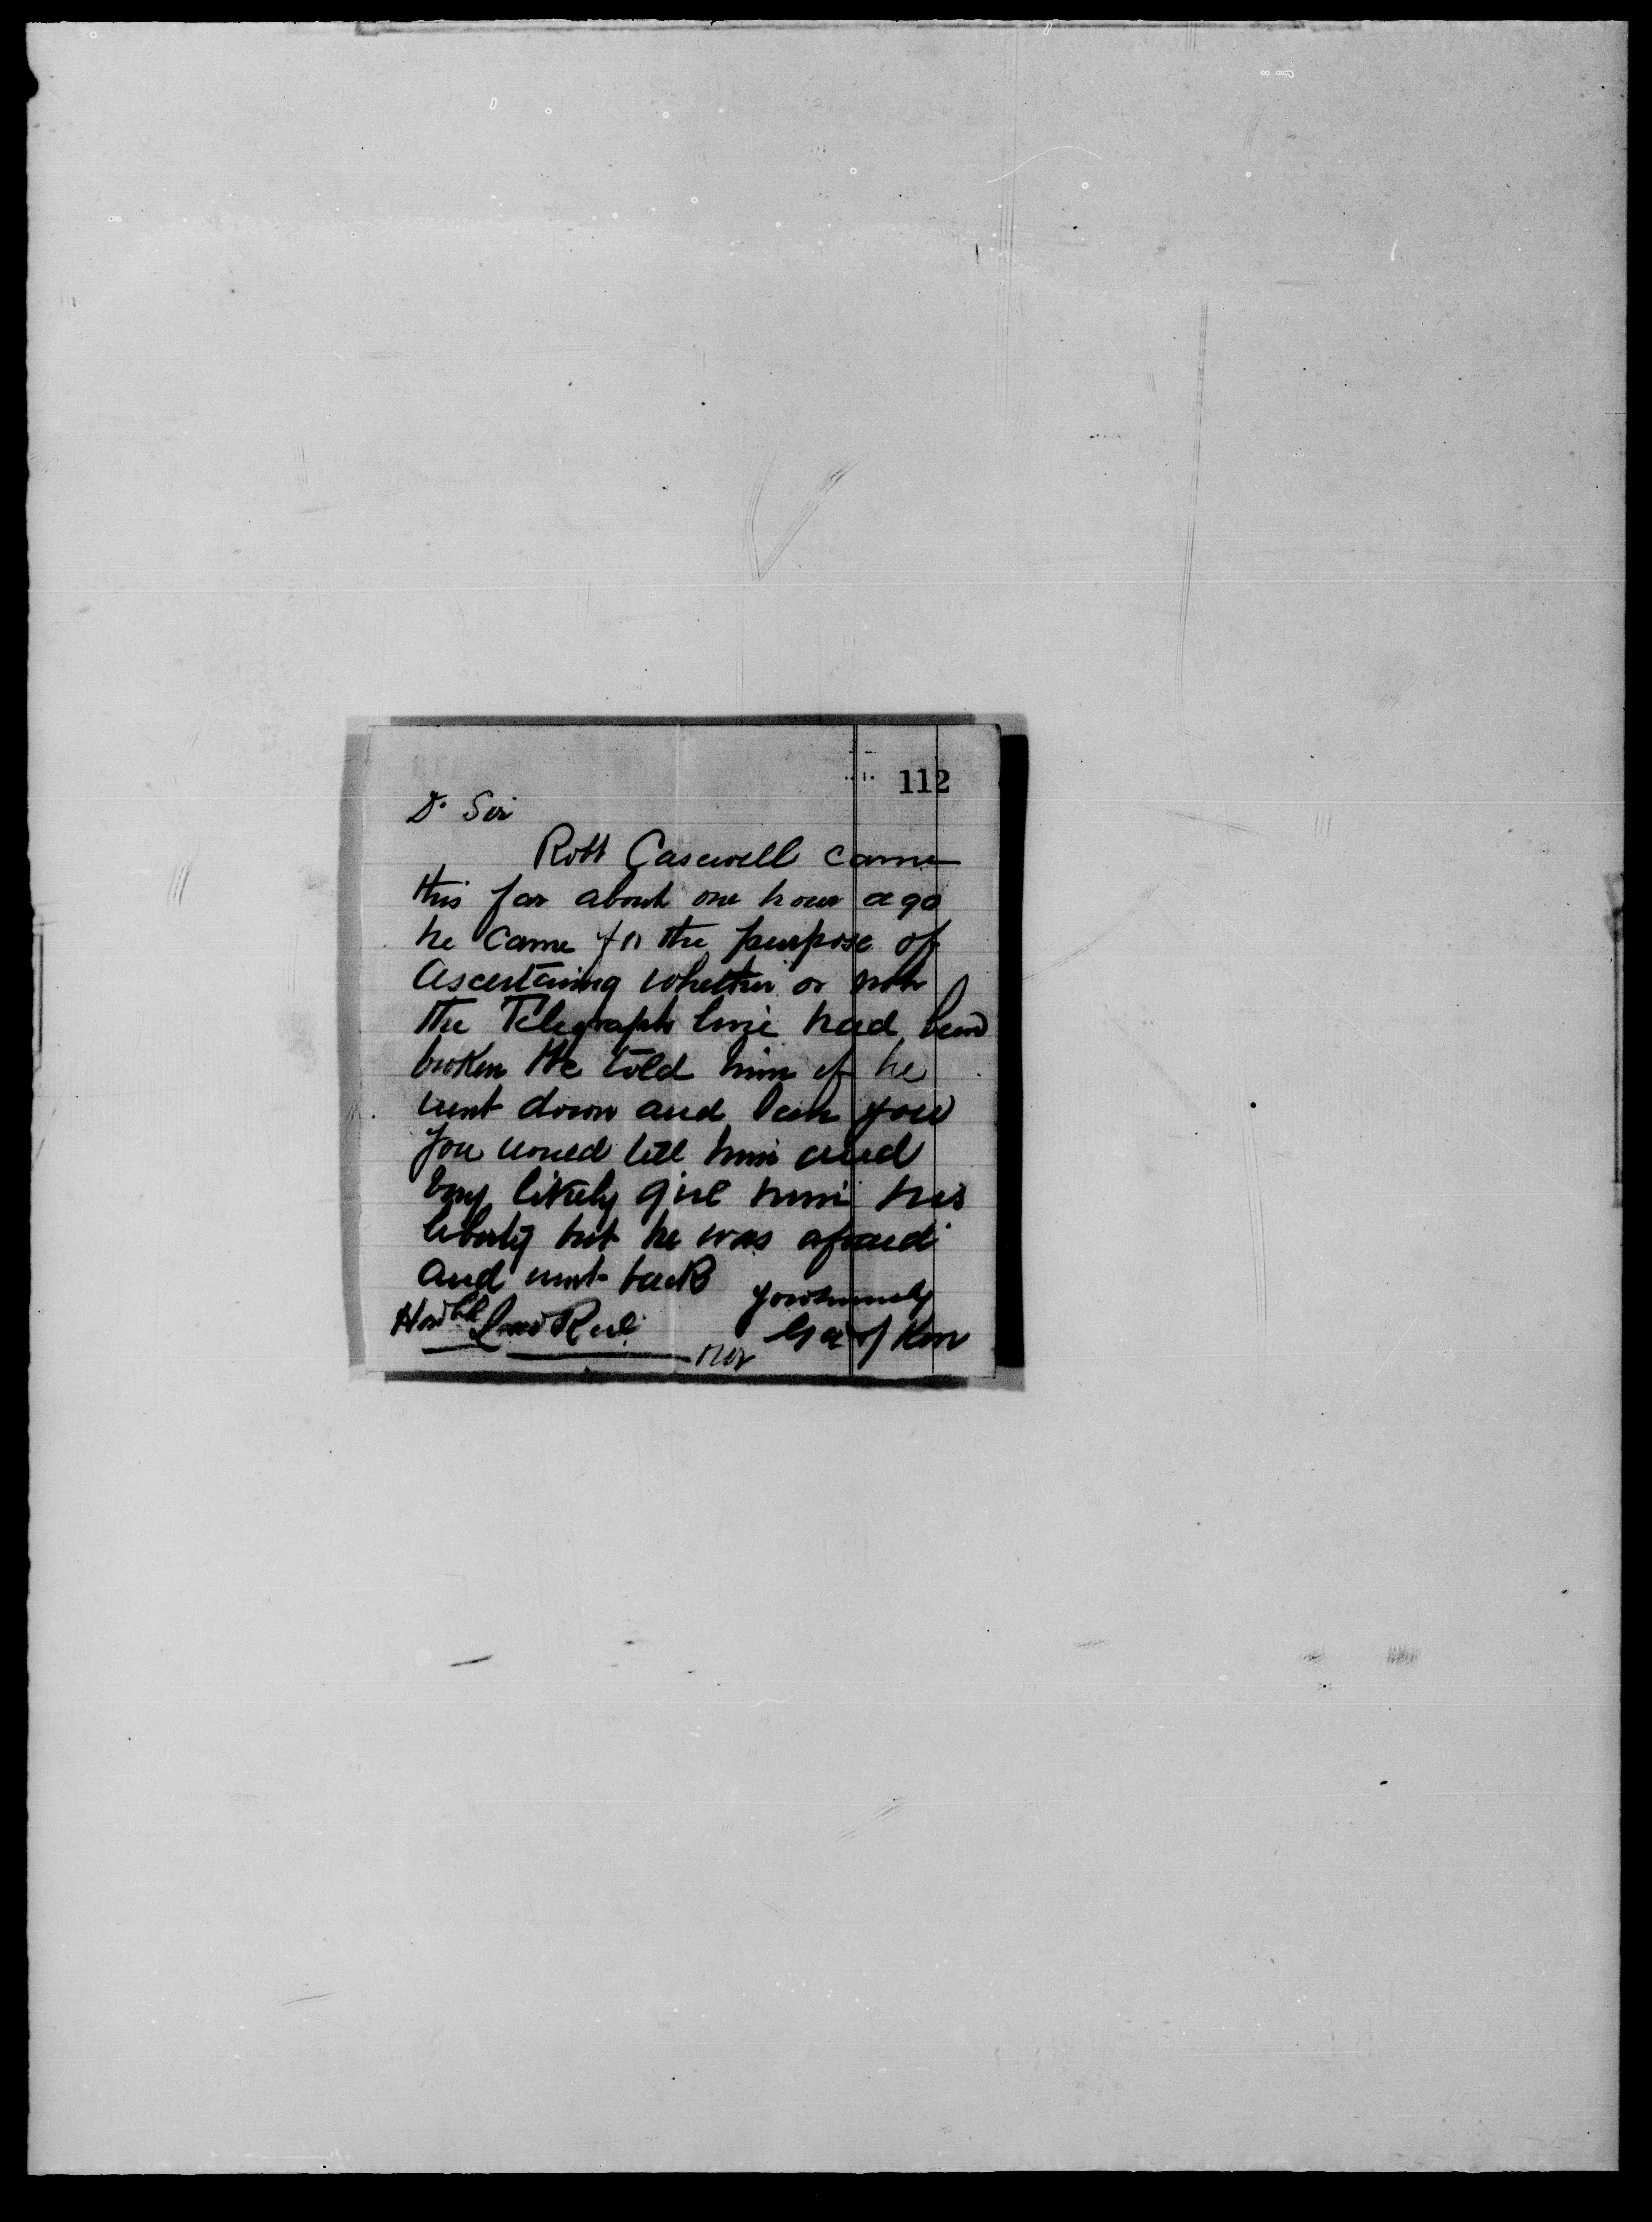 112
Dr Sir
Robt Casewell came
this far about one hour ago
he came for the purpose of
ascertaining whether or not
the Telegraph line had been
broken We told him if he
went down and seen you
you would tell him and
very likely give him his
liberty but he was afraid
and went back
yours truly
Honble Louis Riel
Geo Ness